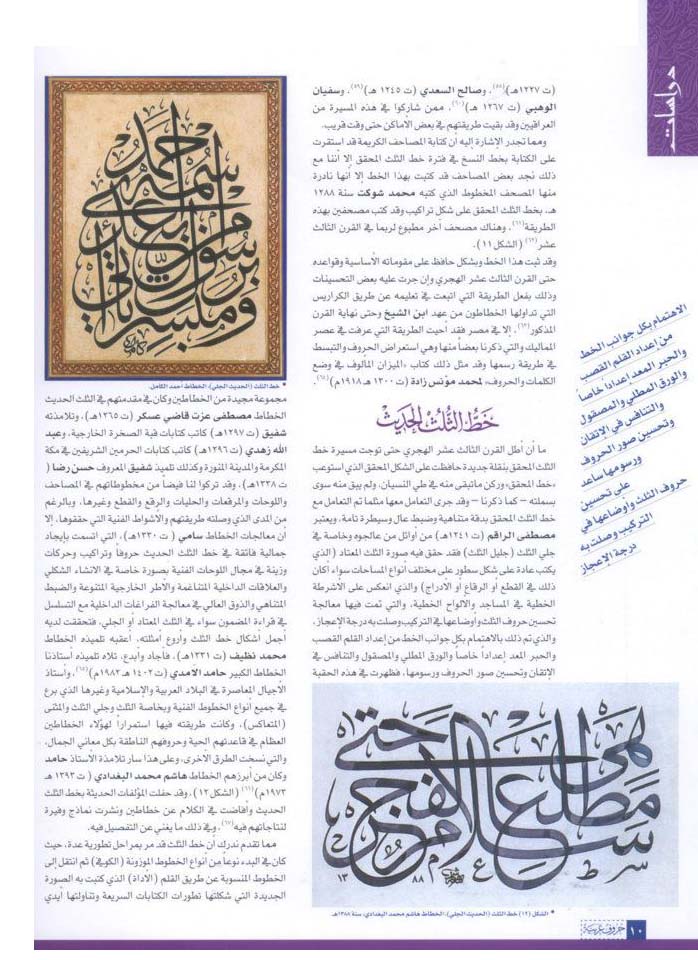 دراسات
(ت ١٢٢٧هـ)(٥٨)، وصالح السعدي (ت ١٢٤٥ هـ)(٥٩)، وسفيان
الوهبي (ت ١٢٦٧ هـ)(٦٠)، ممن شاركوا في هذه المسيرة من
العراقيين وقد بقيت طريقتهم في بعض الأماكن حتى وقت قريب.
ومما تجدر الإشارة إليه أن كتابة المصاحف الكريمة قد استقرت
على الكتابة بخط النسخ في فترة خط الثلث المحقق إلا أننا مع
ذلك نجد بعض المصاحف قد كتبت بهذا الخط إلا انها نادرة
منها المصحف المخطوط الذي كتبه محمد شوكت سنة ١٢٨٨
هـ، بخط الثلث المحقق على شكل تراكيب وقد كتب مصحفين بهذه
الطريقة(٦١)، وهناك مصحف آخر مطبوع لربما في القرن الثالث
عشر(٦٢) (الشكل ١١).
وقد ثبت هذا الخط وبشكل حافظ على مقوماته الأساسية وقواعده
حتى القرن الثالث عشر الهجري وإن جرت عليه بعض التحسينات
وذلك بفعل الطريقة التي اتبعت في تعليمه عن طريق الكراريس
التي تداولها الخطاطون من عهد ابن الشيخ وحتى نهاية القرن
المذكور(٦٣)، إلا في مصر فقد أحيت الطريقة التي عرفت في عصر
المماليك والتي ذكرنا بعضاً منها وهي استعراض الحروف والتبسط
في طريقة رسمها وقد مثل ذلك كتاب ،الميزان المألوف في وضع
الكلمات والحروف، لمحمد مؤنس زادة (ت ١٣٠٠ هـ ١٩١٨م)(٦٤).
خط الثلث الحديث
ما أن أطل القرن الثالث عشر الهجري حتى توجت مسيرة خط
الثلث المحقق بنقلة جديدة حافظت على الشكل المحقق الذي استوعب
خط ،المحقق، وركن ماتبقى منه في طي النسيان، ولم يبق منه سوى
بسملته – كما ذكرنا – وقد جرى التعامل معها مثلما تم التعامل مع
خط الثلث المحقق بدقة متناهية وضبط عال وسيطرة تامة، ويعتبر
مصطفى الراقم (ت ١٢٤١هـ) من أوائل من عالجوه وخاصة في
جلي الثلث (جليل الثلث) فقد حقق فيه صورة الثلث المعتاد (الذي
يكتب عادة على شكل سطور على مختلف أنواع المساحات سواء أكان
ذلك في القطع أو الرقاع أو الادراج) والذي انعكس على الأشرطة
الخطية في المساجد والألواح الخطية، والتي تمت فيها معالجة
تحسين حروف الثلث وأوضاعها في التركيب وصلت به درجة الإعجاز،
والذي تم ذلك بالاهتمام بكل جوانب الخط من إعداد القلم القصب
والحبر المعد إعداداً خاصاً والورق المطلي والمصقول والتنافس في
الإتقان وتحسين صور الحروف ورسومها، فظهرت في هذه الحقبة
الاهتمام بكل جوانب الخط
من إعداد القلم القصب
والحبر المعد إعداداً خاصاً
والورق المطلي والمصقول
والتنافس في الاتقان
وتحسين صور الحروف
ورسومها ساعد
على تحسين
حروف الثلث وأوضاعها في
التركيب وصلت به
درجة الإعجاز
سلام هي حتى مطلع الفجر
١٣ ٨٨
الشكل (١٢) خط الثلث (الحديث الجلي)، الخطاط هاشم محمد البغدادي، سنة ١٣٨٨هـ
ومبشرا برسول يأتي من بعدي اسمه أحمد
خط الثلث (الحديث الجلي)، الخطاط أحمد الكامل.
مجموعة مجيدة من الخطاطين وكان في مقدمتهم في الثلث الحديث
الخطاط مصطفى عزت قاضي عسكر (ت ١٢٦٥هـ)، وتلامذته
شفيق (ت ١٢٩٧هـ) كاتب كتابات قبة الصخرة الخارجية، وعبد
الله زهدي (ت ١٢٩٦هـ) كاتب كتابات الحرمين الشريفين في مكة
المكرمة والمدينة المنورة وكذلك تلميذ شفيق المعروف حسن رضا (
ت ١٣٣٨هـ)، وقد تركوا لنا فيضاً من مخطوطاتهم في المصاحف
واللوحات والمرقعات والحليات والرقع والقطع وغيرها، وبالرغم
من المدى الذي وصلته طريقتهم والأشواط الفنية التي حققوها، إلا
أن معالجات الخطاط سامي (ت ١٣٣٠هـ)، التي اتسمت بإيجاد
جمالية فائقة في خط الثلث الحديث حروفاً وتراكيب وحركات
وزينة في مجال اللوحات الفنية بصورة خاصة في الانشاء الشكلي
والعلاقات الداخلية المتناغمة والأطر الخارجية المتنوعة والضبط
المتناهي والذوق العالي في معالجة الفراغات الداخلية مع التسلسل
في قراءة المضمون سواء في الثلث المعتاد أو الجلي، فتحققت لديه
أجمل أشكال خط الثلث وأروع أمثلته، أعقبه تلميذه الخطاط
محمد نظيف (ت ١٣٣١هـ)، فأجاد وأبدع، تلاه تلميذه أستاذنا
الخطاط الكبير حامد الامدي (ت ١٤٠٢ هـ ١٩٨٢م)(٦٥)، وأستاذ
الأجيال المعاصرة في البلاد العربية والإسلامية وغيرها الذي برع
في جميع أنواع الخطوط الفنية وبخاصة الثلث وجلي الثلث والمثنى
(المتعاكس)، وكانت طريقته فيها استمراراً لهؤلاء الخطاطين
العظام في قاعدتهم الحية وحروفهم الناطقة بكل معاني الجمال،
والتي نسخت الطرق الأخرى، وعلى هذا سار تلامذة الأستاذ حامد
وكان من أبرزهم الخطاط هاشم محمد البغدادي ( ت ١٣٩٣ هـ
١٩٧٣م)(٦٦) (الشكل ١٢)، وقد حفلت المؤلفات الحديثة بخط الثلث
الحديث وأفاضت في الكلام عن خطاطين ونشرت نماذج وفيرة
لنتاجاتهم فيه(٦٧)، وفي ذلك ما يغني عن التفصيل فيه.
مما تقدم ندرك أن خط الثلث قد مر بمراحل تطورية عدة، حيث
كان في البدء نوعاً من أنواع الخطوط الموزونة (الكوفي) ثم انتقل إلى
الخطوط المنسوبة عن طريق القلم (الأداة) الذي كتبت به الصورة
الجديدة التي شكلتها تطورات الكتابات السريعة وتناولتها أيدي
١٠ حروف عربية